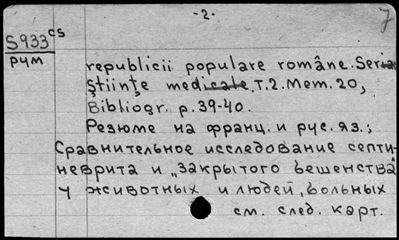 -2.
7
S933cs
рум
republicii populare române. Seria
Știinţe medicale, T.2. Mem. 20,
Bibliogr. p. 39-40.
Резюме на франц. и рус. яз.;
Сравнительное исследование септи-
неврита и „закрытого бешенства"
у животных и людей, больных
см. след. карт.